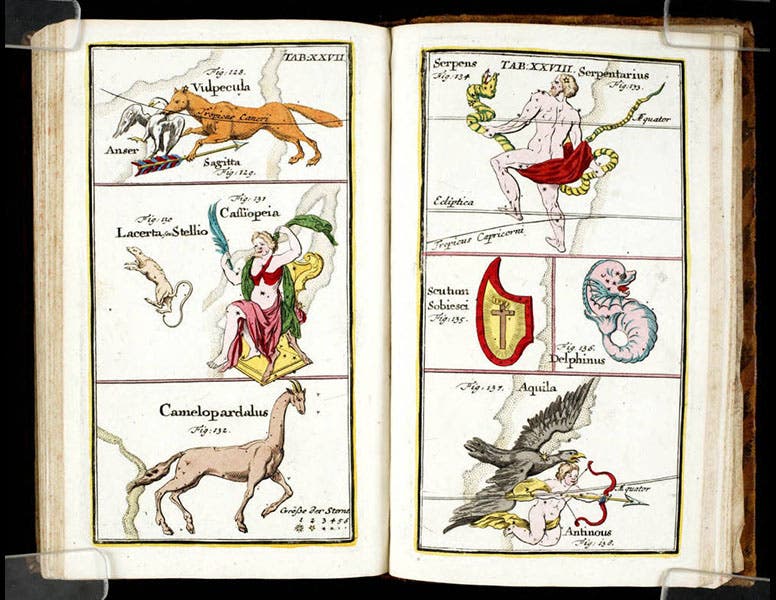 TAB:XXVII
Fig: 128.
Vulpecula
Tropicus Cancri
Anser
Sagitta
Fig: 129.
Fig: 131
Cassiopeia
Fig: 130
Lacerta sive Stellio
Camelopardalus
Fig: 132.
Größe der Sterne
1 2 3 4 5 6
Serpens
Fig: 134
TAB: XXVIII.
Serpentarius
Fig: 133.
Æquator
Ecliptica
Tropicus Capricorni
Scutum
Sobiesci
Fig: 135.
Fig: 136.
Delphinus
Fig: 137.
Aquila
Æquator
Antinous
Fig: 138.